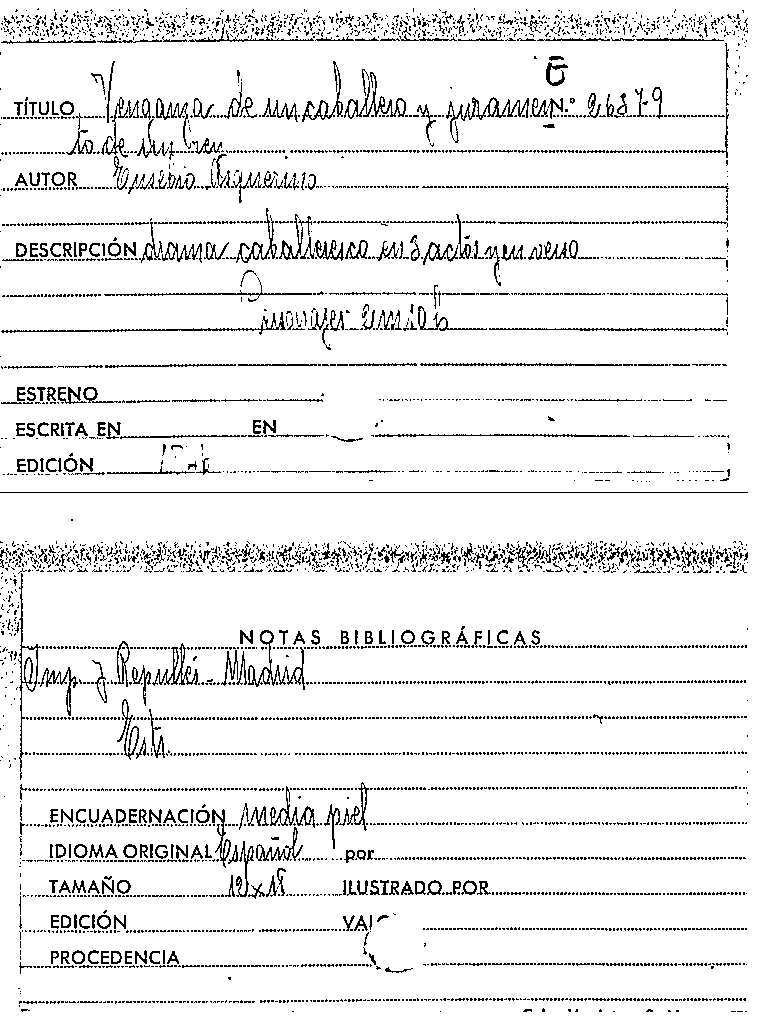 Ō
TÍTULO Venganza de un caballero y juramen N.º 2687-9
to de un
AUTOR Eusebio Asquerino
DESCRIPCIÓN drama caballeresco en 3 actos y en verso
ESTRENO
ESCRITA EN EN
EDICIÓN
NOTAS BIBLIOGRÁFICAS
Imp. J Repullés - Madrid
ENCUADERNACIÓN media piel
IDIOMA ORIGINAL Español por
TAMAÑO 12x18 ILUSTRADO POR
EDICIÓN
PROCEDENCIA